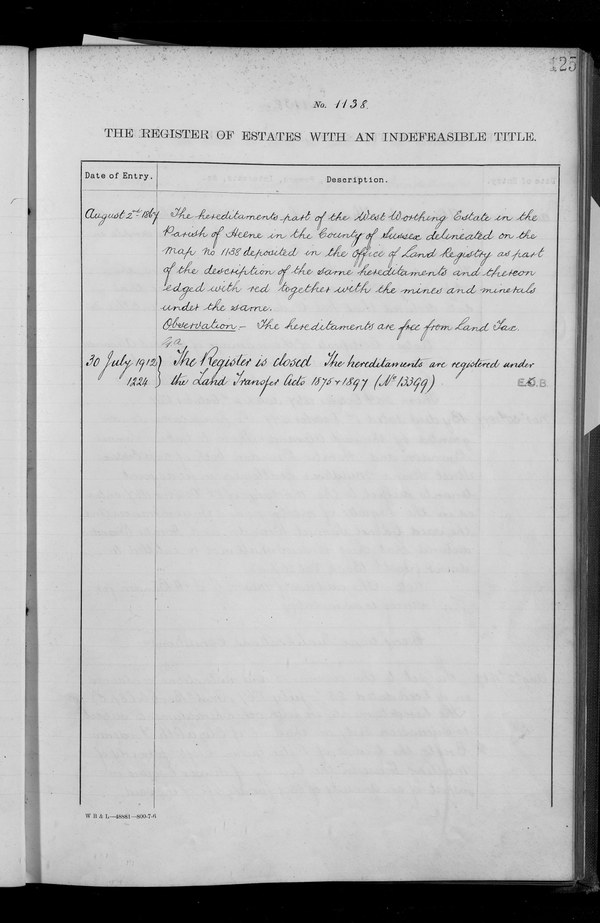 125
No. 1138.
THE REGISTER OF ESTATES WITH AN INDEFEASIBLE TITLE.
Date of Entry.
Description.
August 2nd 1867
The hereditaments part of the West Worthing Estate in the
Parish of Heene in the County of Sussex delineated on the
Map No 1138 deposited in the Office of Land Registry as part
of the description of the same hereditaments and thereon
edged with red together with the mines and minerals
under the same.
Observation – The hereditaments are free from Land Tax.
30 July 1912 } The Register is closed The hereditaments are registered under
1224 } the Land Transfer Acts 1875 & 1897 (No 13399)
E.G.B.
W B & L—48881—800-7-6